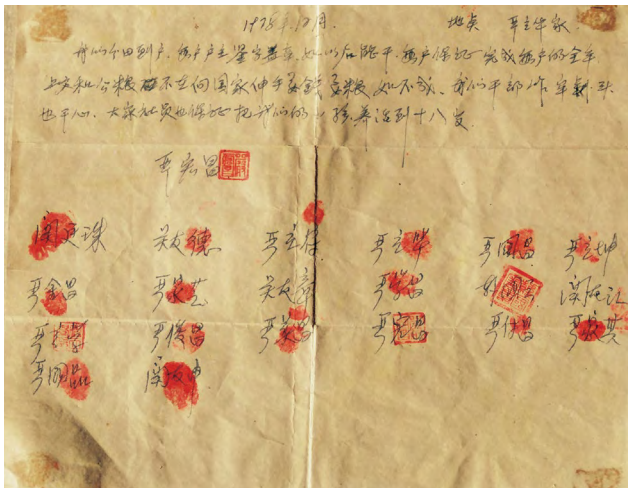 1978年12月. 地点 严立华家
我们分田到户,每户户主签字盖章,如以后能干,每户保证完成每户的全年
上交和公粮不在向国家伸手要钱要粮,如不成,我们干部作牢刹头
也干心,大家社员也保证把我们的小孩养活到十八岁.
严宏昌
关廷珠 关友德 严立符 严立华 严国昌 严立坤
严金昌 严家芝 关友章 严学昌 韩国云 关友江
严立学 严俊昌 严美昌 严宏昌 严付昌 严家其
严国品 关友申